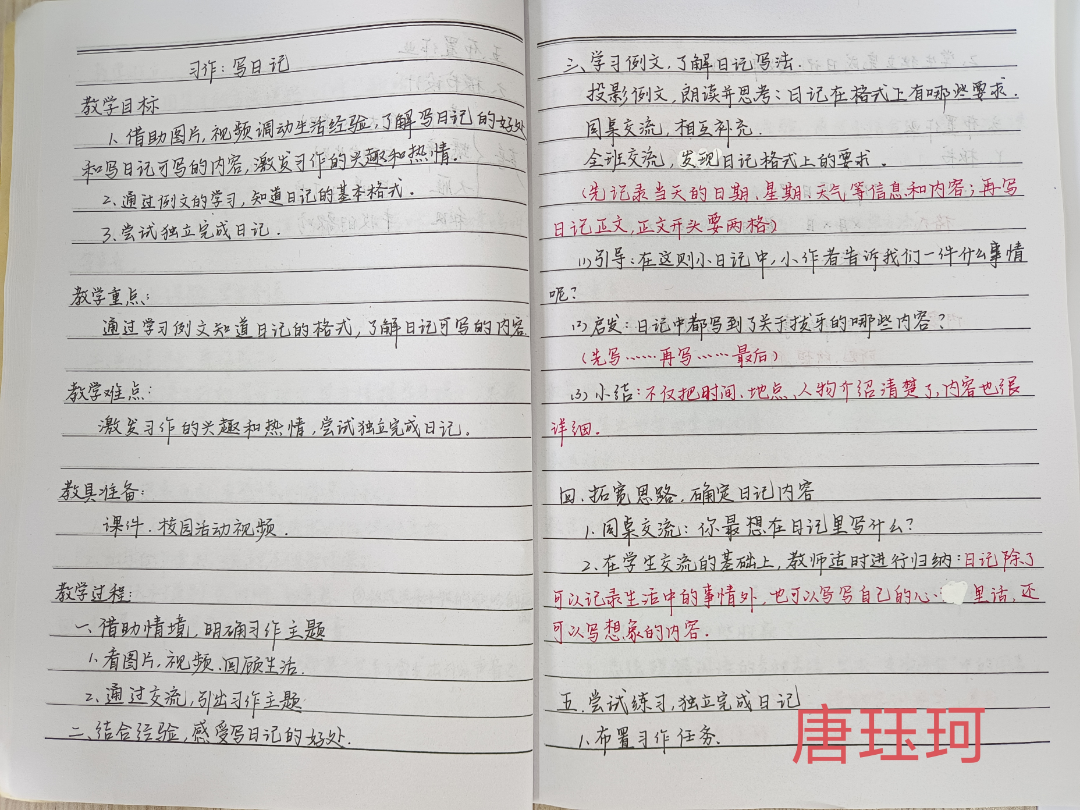 习作：写日记
教学目标
1. 借助图片，视频调动生活经验，了解写日记的好处
和写日记可写的内容，激发习作的兴趣和热情.
2. 通过例文的学习，知道日记的基本格式.
3. 尝试独立完成日记.
教学重点：
通过学习例文知道日记的格式，了解日记可写的内容
教学难点：
激发习作的兴趣和热情，尝试独立完成日记.
教具准备：
课件. 校园活动视频.
教学过程：
一、借助情境，明确习作主题
1. 看图片，视频、回顾生活.
2. 通过交流，引出习作主题
二、结合经验，感受写日记的好处.
三、学习例文，了解日记写法.
投影例文，朗读并思考：日记在格式上有哪些要求.
同桌交流，相互补充.
全班交流，发现日记格式上的要求.
(先记录当天的日期、星期、天气等信息和内容；再写
日记正文，正文开头要两格)
(1) 引导：在这则小日记中，小作者告诉我们一件什么事情
呢？
(2) 启发：日记中都写到了关于拔牙的哪些内容？
(先写……再写……最后)
(3) 小结：不仅把时间、地点、人物介绍清楚了，内容也很
详细.
四. 拓宽思路，确定日记内容
1. 同桌交流：你最想在日记里写什么？
2. 在学生交流的基础上，教师适时进行归纳：日记除了
可以记录生活中的事情外，也可以写写自己的心里话，还
可以写想象的内容.
五. 尝试练习，独立完成日记
1. 布置习作任务.
唐珏珂